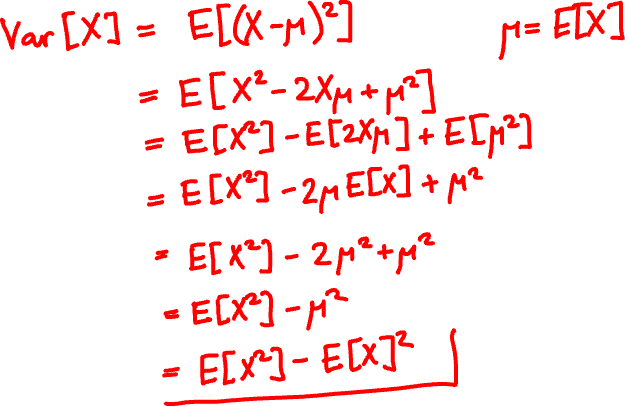 Var[X] = E[(X-μ)²] μ = E[X]
= E[X²-2Xμ+μ²]
= E[X²]-E[2Xμ]+E[μ²]
= E[X²]-2μE[X]+μ²
= E[X²]-2μ²+μ²
= E[X²]-μ²
= E[X²]-E[X]²